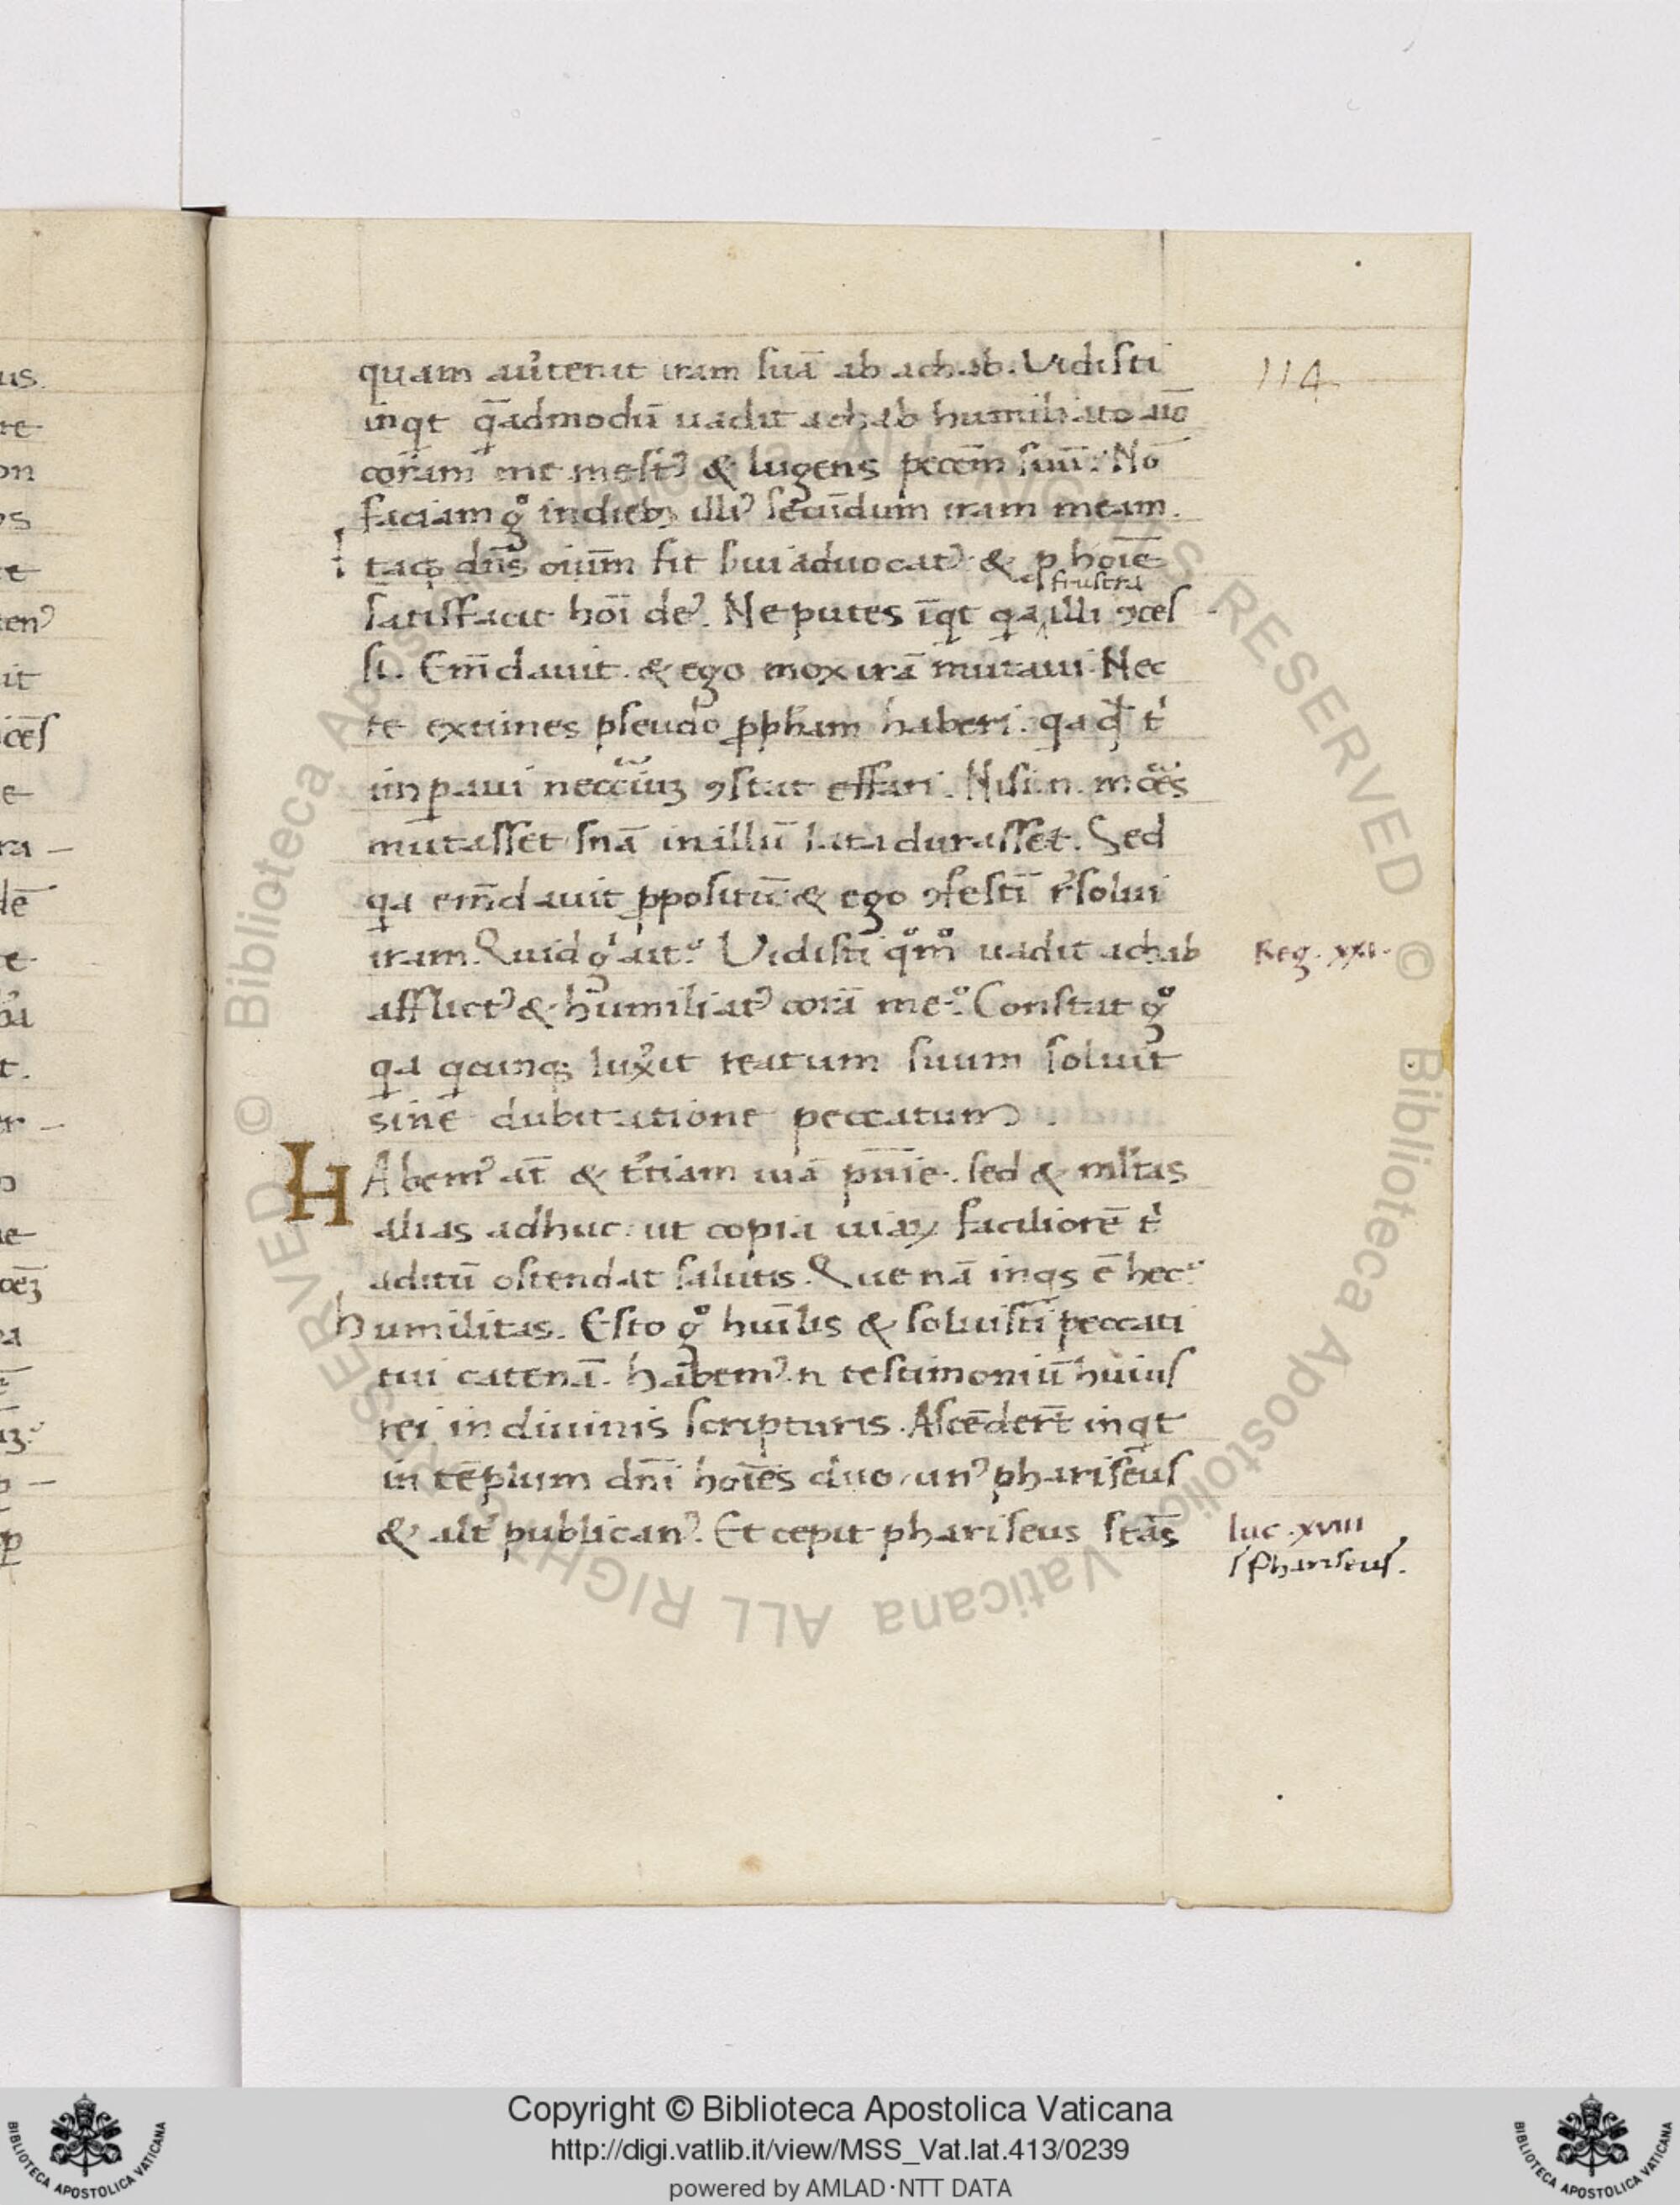 quam aut̓erit iram suā ab achab. Vidisti
inqt q̄admodū uadit achab humiliato uō
coram me mestꝰ & lugens peccm̄ suū: Nō
faciam gͦ indiebꝫ illiꝰ secūdum iram meam.
Itaqꝫ dn̄s oiūm fit sui aduocatꝰ & p hoīe
frustra
satisfacit hoī deꝰ. Ne putes īqt qa illi ꝯces
si. Em̄dauit. & ego mox irā mutaui. Nec
te extimes pseudo ꝓpham haberi. qa qd̄ t'
inpaui neccīuꝫ ꝯstat effari. Nisi .n. mōēs
mutasset snā in illū lata durasset. Sed
qa em̄dauit ꝓpositū & ego ꝯfestī r̓solui
iram. Quid g' ait? Vidisti qͦmͦ uadit achab
afflictꝰ & humiliatꝰ corā me? Constat gͦ
qa qcunqꝫ lux̓it reatum suum soluit
sine dubitatione peccatum.
HAbemꝰ aūt & t̓tiam uiā pn̄ie. sed & ml̓tas
alias adhuc. ut copia uiaꝝ faciliorē t'
aditū ostendat salutis. Que nā inqs ē hec?
humilitas. Esto gͦ huīlis & soluisti peccati
tui catenā. habemꝰ .n. testimoniū huius
rei in diuinis scripturis. Ascēder̄t inqt
in tēplum dn̄i hoīes duo, unꝰ phariseus
& alt̓ publicanꝰ. Et cepit phariseus stās
114
Reg. xxi.
luc. xviii
Phariseus.
Copyright © Biblioteca Apostolica Vaticana
http://digi.vatlib.it/view/MSS_Vat.lat.413/0239
powered by AMLAD·NTT DATA